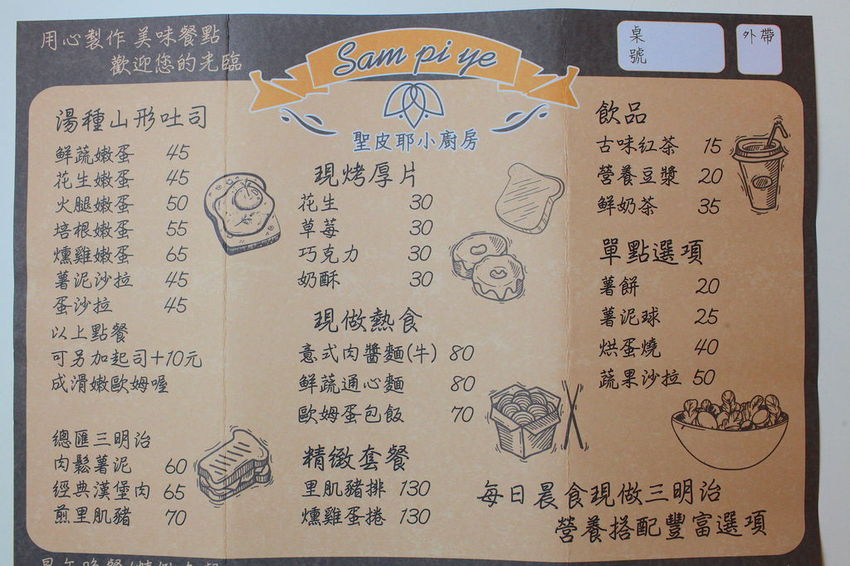 用心製作 美味餐點
歡迎您的光臨
Sam pi ye
聖皮耶小廚房
桌號
外帶
湯種山形吐司
鮮蔬嫩蛋 45
花生嫩蛋 45
火腿嫩蛋 50
培根嫩蛋 55
燻雞嫩蛋 65
薯泥沙拉 45
蛋沙拉 45
以上點餐
可另加起司+10元
成滑嫩歐姆喔
總匯三明治
肉鬆薯泥 60
經典漢堡肉 65
煎里肌豬 70
現烤厚片
花生 30
草莓 30
巧克力 30
奶酥 30
現做熱食
意式肉醬麵(牛) 80
鮮蔬通心麵 80
歐姆蛋包飯 70
精緻套餐
里肌豬排 130
燻雞蛋捲 130
飲品
古味紅茶 15
營養豆漿 20
鮮奶茶 35
單點選項
薯餅 20
薯泥球 25
烘蛋燒 40
蔬果沙拉 50
每日晨食現做三明治
營養搭配豐富選項